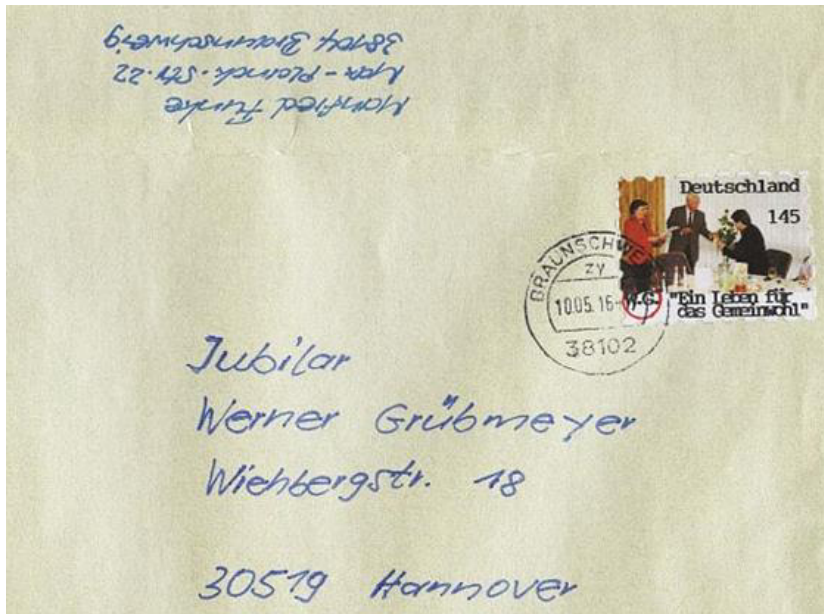 Manfred Funke
Max-Planck-Str. 22
38104 Braunschweig
Deutschland
145
W.G. "Ein Leben für
das Gemeinwohl"
BRAUNSCHWE
zy
10.05.16-17
38102
Jubilar
Werner Grübmeyer
Wiehbergstr. 18
30519 Hannover